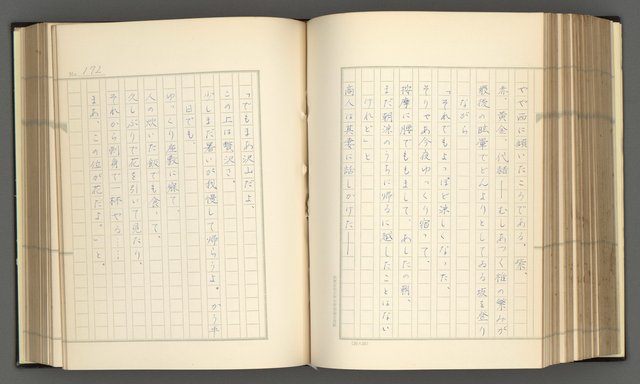 やや西に傾いたこうである。紫、
赤、黄金、代赭――むしあつく雑の繁みが
最後の眩暈でどんよりとしてゐる坂を登り
ながら
「それでもよっぽど涼しくなった、
そりやあ今夜ゆっくり宿って、
按摩に腰でももまして、あしたの朝、
まだ朝涼のうちに帰るに越したことはない
けれど」と
商人は其妻に話しかけた――
No. 172
「でもまあ沢山だよ、
この上は贅沢さ、
少しまだ暑いが我慢して帰らうよ。かう半
日でも、
ゆっくり座敷に寐て、
人の炊いた飯でも食って、
久しぶりで花を引いて見たり、
それから刺身で一杯やる……
まあ、この位が花だよ。」と。